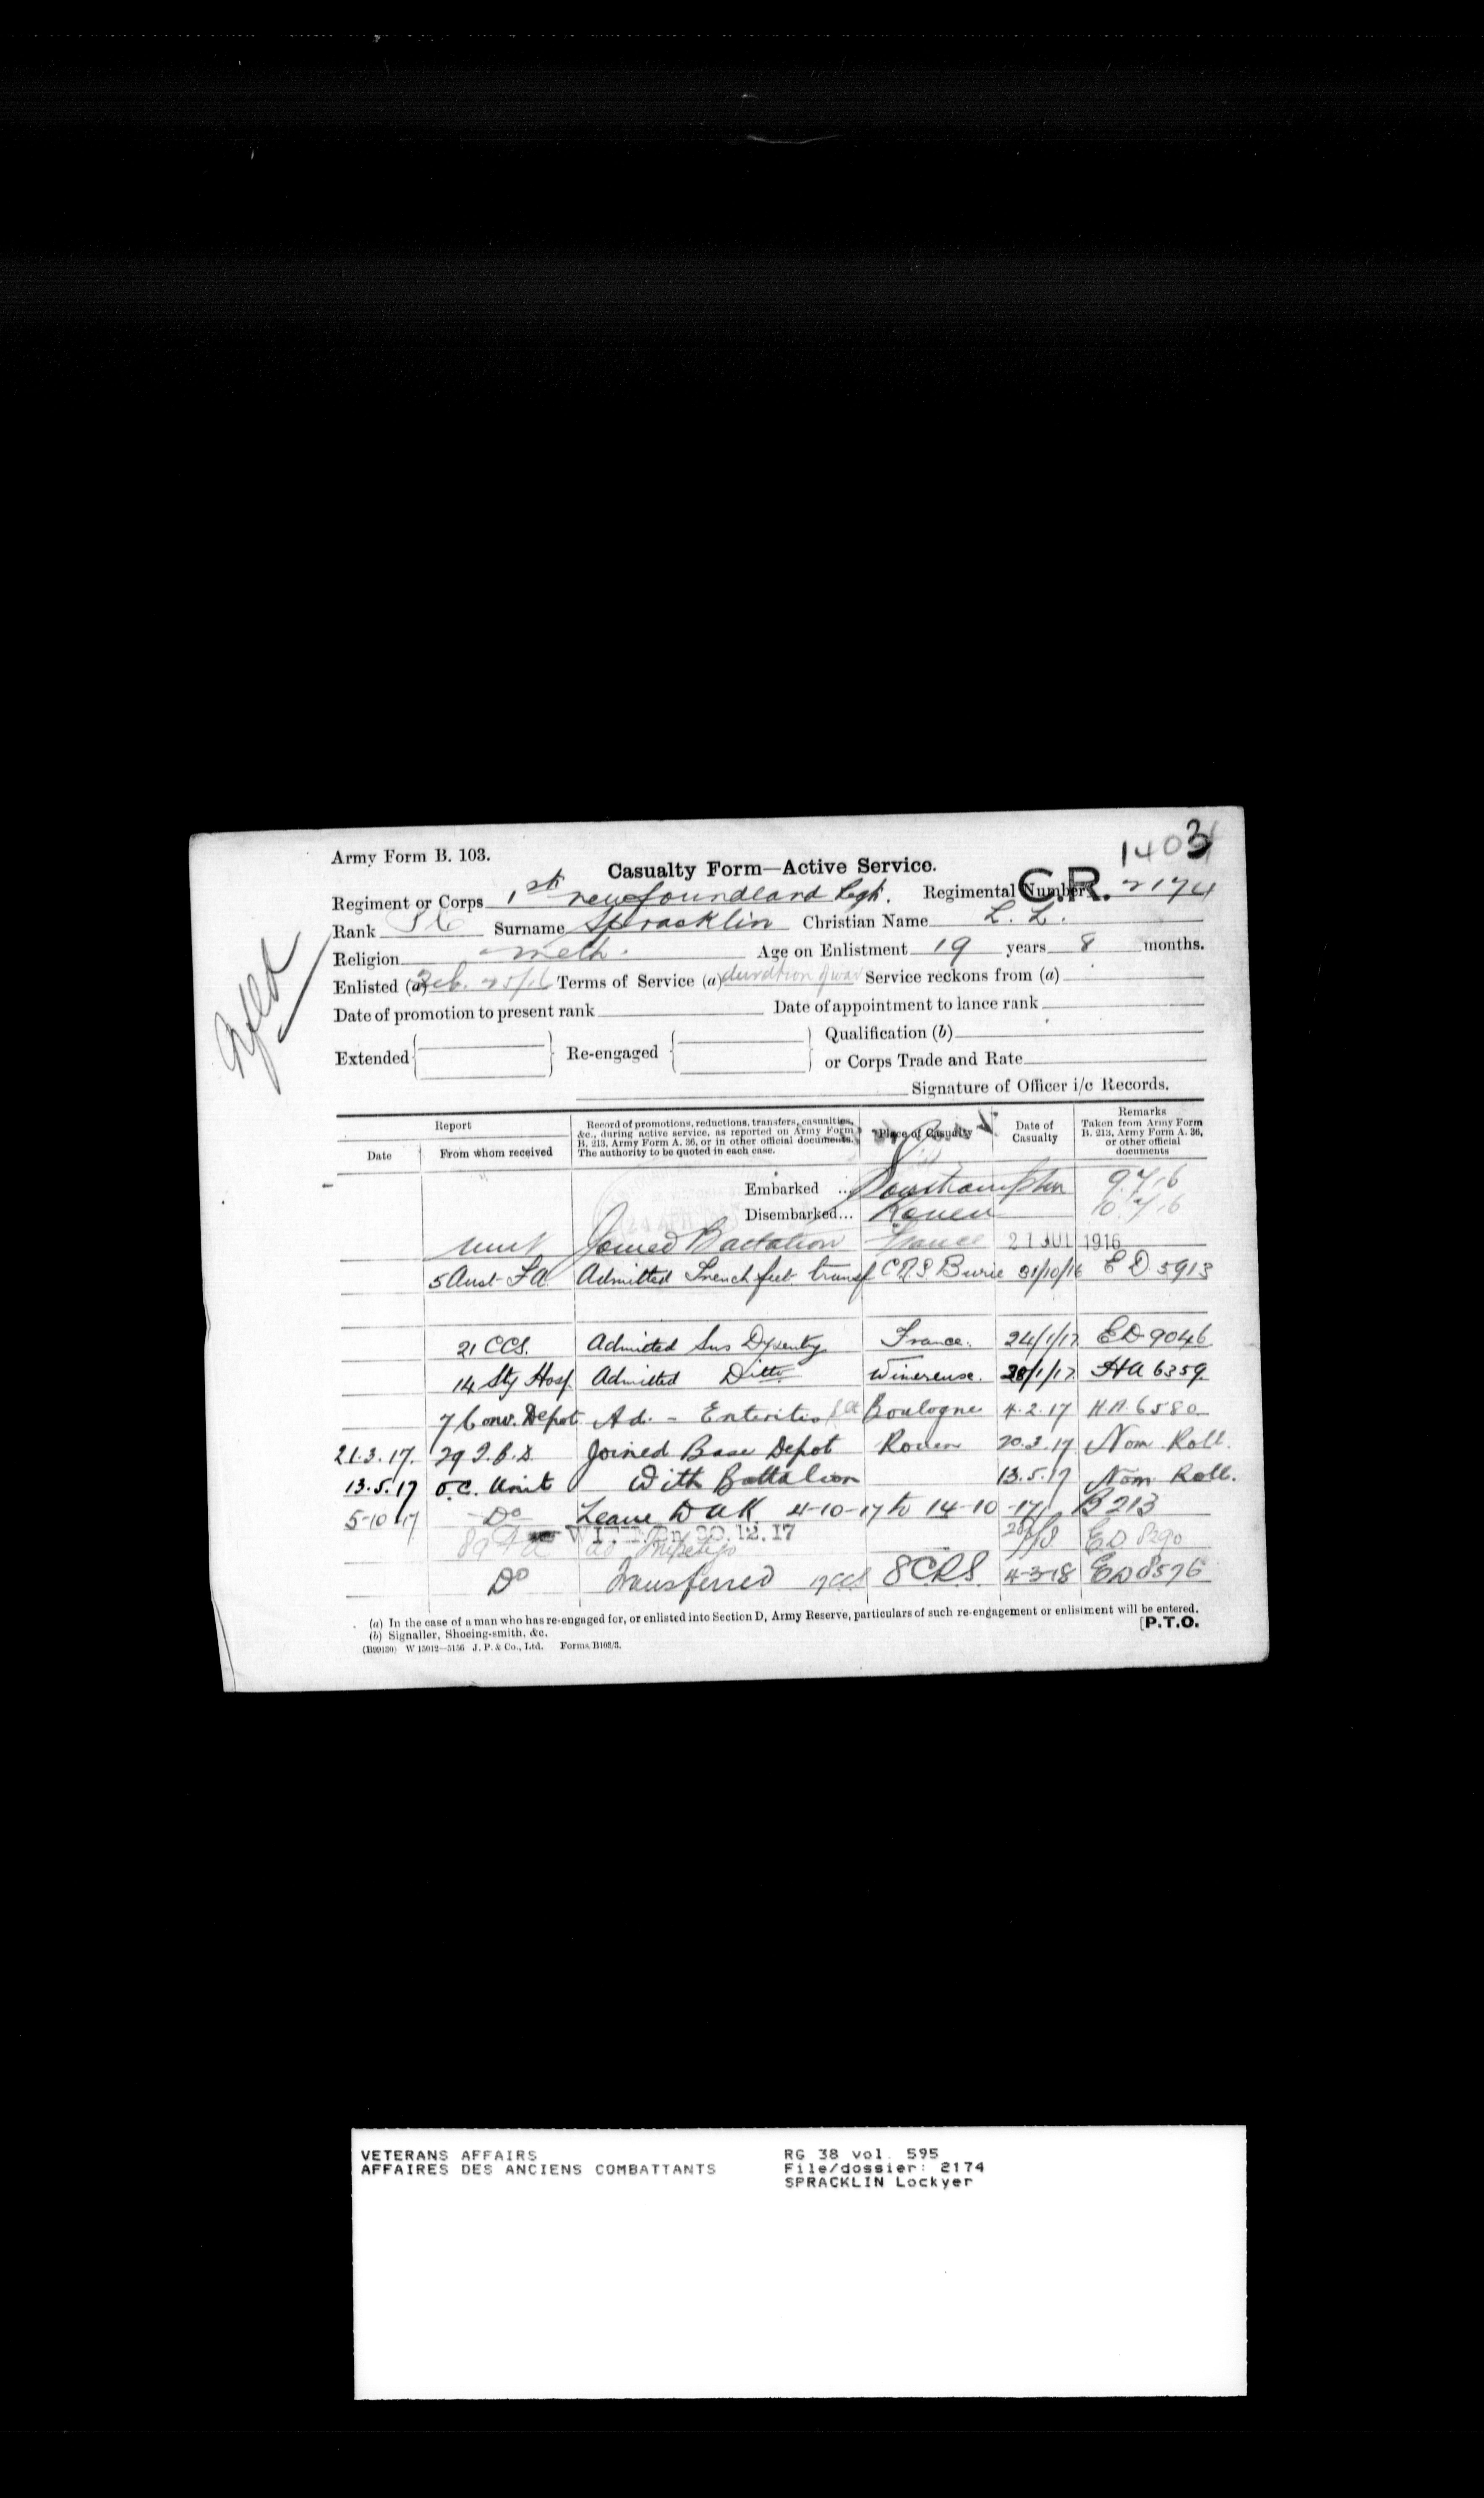 1403
Army Form B. 103.
Casualty Form—Active Service.
Regiment or Corps 1st Newfoundland Regt. Regimental Number 2174
C.R.
Rank Pte Surname Spracklin Christian Name L. L.
Religion Meth. Age on Enlistment 19 years 8 months.
Enlisted (a) Feb. 25/16 Terms of Service (a) duration of war Service reckons from (a)
Date of promotion to present rank Date of appointment to lance rank
Extended Re-engaged Qualification (b)
or Corps Trade and Rate
Signature of Officer i/c Records.
Nfld
Report
Date From whom received
Record of promotions, reductions, transfers, casualties, &c., during active service, as reported on Army Form B. 213, Army Form A. 36, or in other official documents. The authority to be quoted in each case.
Place of Casualty
Date of Casualty
Remarks Taken from Army Form B. 213, Army Form A. 36, or other official documents
Embarked ... Southampton 9.7.16
Disembarked... Rouen 10.7.16
Unit Joined Battalion France 21 JUL 1916
5 Aust F A Admitted Trench feet transf C R S Burie 31/10/16 E D 5913
21 CCS. Admitted Sus Dysentry France. 24/1/17 ED 9046
14 Sty Hosp Admitted Ditto Wimereux. 28/1/17 HA 6359
7 Conv. Depot Ad. - Enteritis Boulogne 4.2.17 H.A. 6580
21.3.17. 29 I.B.D. Joined Base Depot Rouen 20.3.17 Nom Roll.
13.5.17 O.C. Unit With Battalion 13.5.17 Nom Roll.
5-10-17 Do Leave to UK 4-10-17 to 14-10-17 B 213
WITH Bn 20.12.17
89 F A ad Impetigo ED 8290
Do Transferred 8 CRS. 4-3-18 ED 8576
(a) In the case of a man who has re-engaged for, or enlisted into Section D, Army Reserve, particulars of such re-engagement or enlistment will be entered.
(b) Signaller, Shoeing-smith, &c.
[P.T.O.
W 15012—5156 J. P. & Co., Ltd. Forms/B103/3.
VETERANS AFFAIRS
AFFAIRES DES ANCIENS COMBATTANTS
RG 38 vol. 595
File/dossier: 2174
SPRACKLIN Lockyer